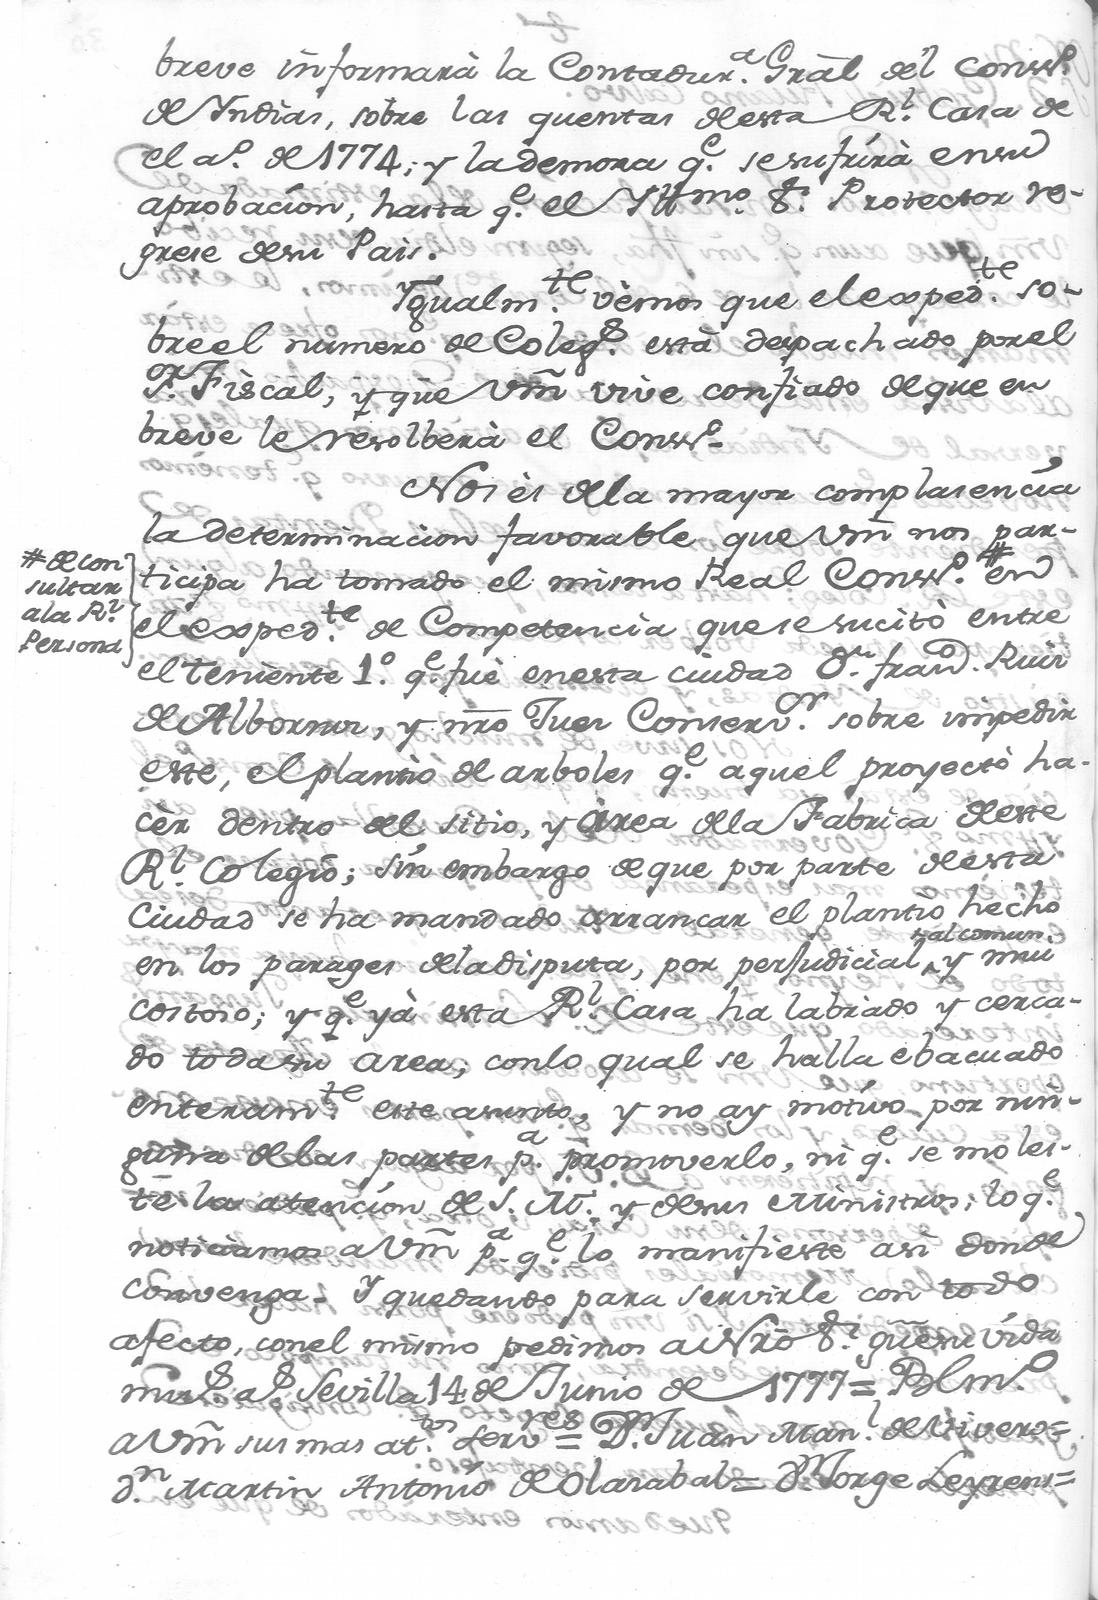 breve informarà la Contadur.ª Grâl del Consº
de Yndias, sobre las quentas de esta Rl. Casa de
el aº. de 1774; y la demora qe. se sufrirà en su
aprobacion, hasta qe. el Yttmo. Sr. Protector re-
grese de su Pais.
Ygualmte. vemos que el expedte. so-
bre el numero de Colegs. està despachado por el
Sor. Fiscal, y que Vm̃ vive confiado de que en
breve le resolberà el Consº.
Nos ès de la mayor complasencia
la determinacion favorable que Vm̃ nos par-
# de con
sultar
a la Rl.
Persona
ticipa ha tomado el mismo Real Consº. # en
el expedte. de Competencia que se sucitò entre
el teniente 1º. qe. fuè en esta ciudad Dn. Francº. Ruiz
de Albornos, y ñro Juez Conservor. sobre impedir
este, el plantìo de arboles qe. aquel proyectò ha-
cer dentro del sitio, y àrea de la Fabrica de este
Rl. Colegio; sin embargo de que por parte de esta
Ciudad se ha mandado arrancar el plantìo hecho
en los parages de la disputa, por perjudicial y mui
al comun.
costoso; y qe. yà esta Rl. Casa ha labrado y cerca-
do toda su area; con lo qual se halla ebacuado
enteramte. este asunto, y no ay motivo por nin-
guna de las partes pª. promoverlo, ni qe. se moles-
te la atencion de S. M. y de sus Ministros; lo qe.
noticiamos a Vm̃ pª. qe. lo manifieste asi donde
convenga. Y quedando para servirle con todo
afecto, con el mismo pedimos a Nrõ Sr. gũe su vida
mus. as. Sevilla 14 de Junio de 1777 = Blmº.
a Vm̃ sus mas attos. servres = Dn. Juan Manl. de Vivero =
Dn. Martin Antonio de Olarabal = Dn. Jorge Leyrens =
quedamos enterados de que en